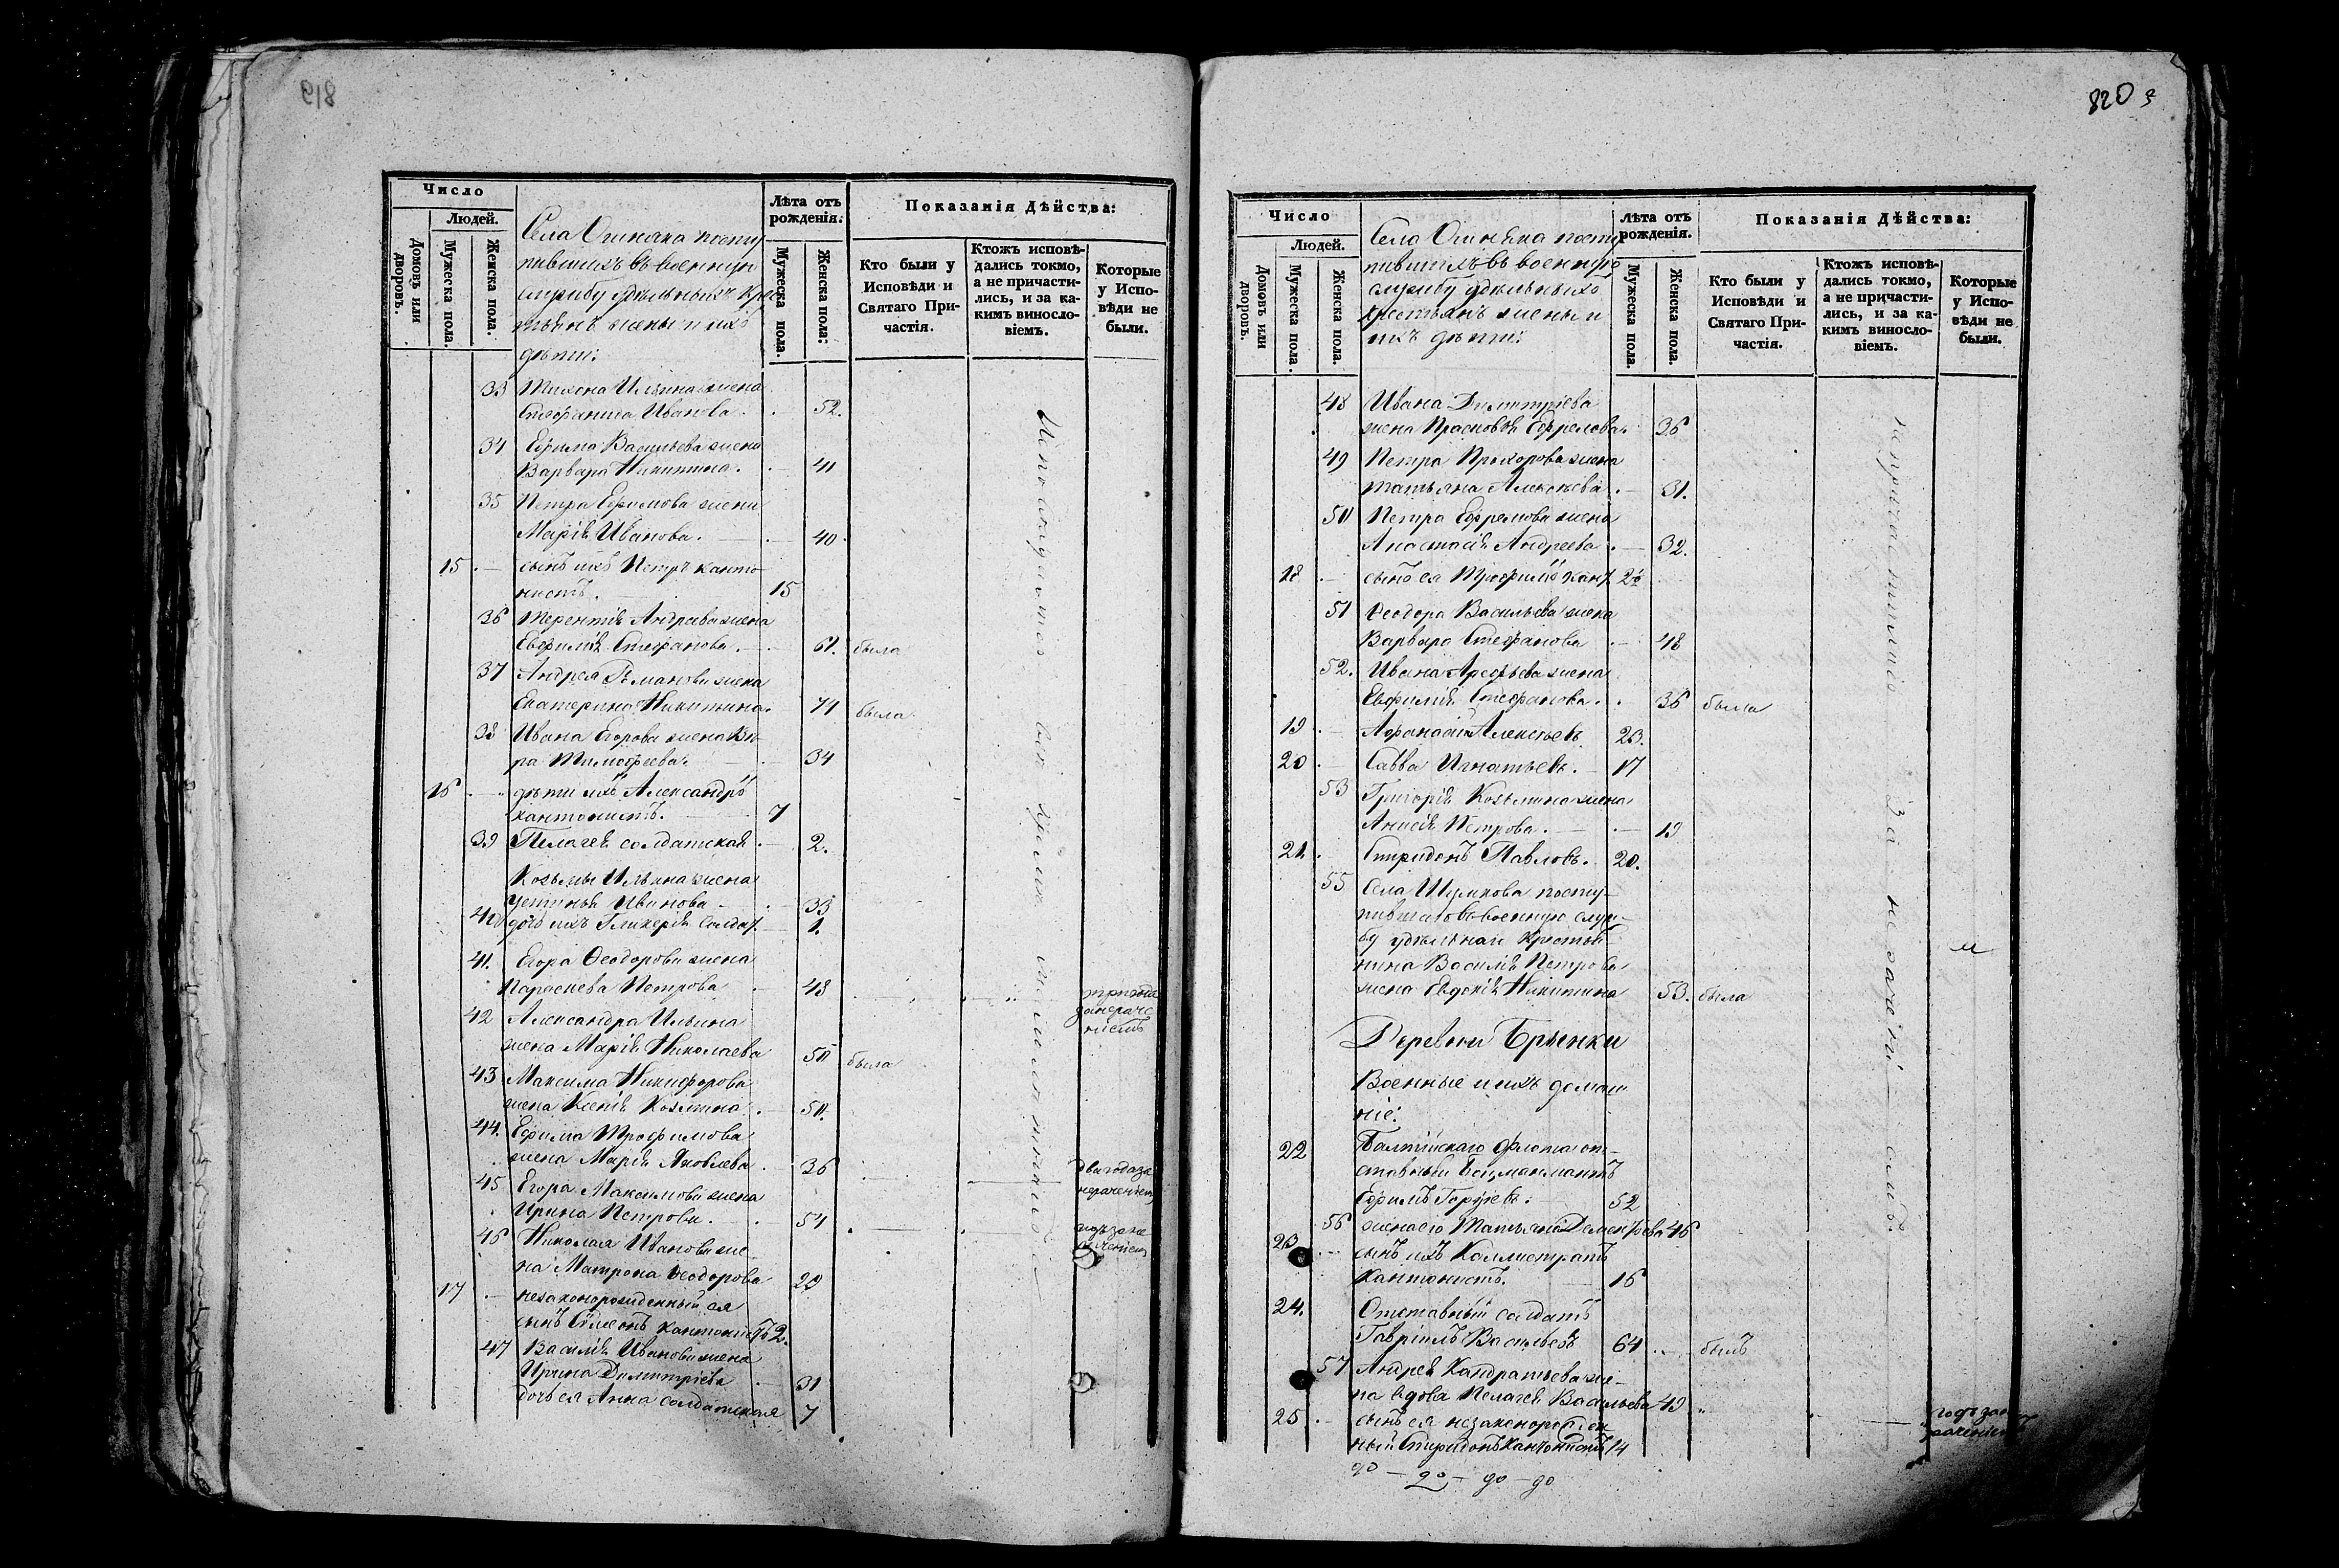 819
Число
Людей.
Домовъ или дворовъ.
Мужеска пола.
Женска пола.
Села поступившихъ въ военную
службу удѣльныхъ крестьянъ жены и ихъ
дѣти:
Лѣта отъ рожденія:
Мужеска пола.
Женска пола:
Показанія Дѣйства:
Кто были у Исповѣди и Святаго Причастія.
Ктожъ исповѣдались токмо, а не причастились, и за какимъ винословіемъ.
Которые у Исповѣди не были.
33 Тихона Ильина жена
Стефанида Иванова. 52.
34 Ефима Васильева жена
Варвара Никитина. 41
35 Петра Ефимова жена
Марія Иванова. 40
15 сынъ ихъ Петръ канто-
нистъ. 15
36 Терентія жена
Евфимія Стефанова. 61. была
37 Андрея Романова жена
Екатерина Никитина. 71 была
38 Ивана Егорова жена Вѣ-
ра Тимофеева. 34
16 дѣти ихъ Александръ
кантонистъ. 7
39 Пелагея солдатская 2.
Козьмы Ильина жена
Устинья Иванова 33
40 дочь ихъ Гликерія солдат. 1.
41. Егора Ѳеодорова жена
Параскева Петрова 48 три года
за нераче-
ніемъ
42 Александра Ильина
жена Марія Николаева 50 была
43 Максима Никифорова
жена Ксенія Козмина 50.
44. Ефима Трофимова
жена Марія Яковлева 36 два года за
нераченіемъ
45 Егора Максимова жена
Ирина Петрова. 54 годъ за не-
раченіемъ
46 Николая Иванова же-
на Матрона Ѳеодорова 29
17 незаконорожденный ея
сынъ Симеонъ кантонистъ 2.
47 Василія Иванова жена
Ирина Димитріева 31
дочь ея Анна солдатская 7
820
Число
Людей.
Домовъ или дворовъ.
Мужеска пола.
Женска пола.
Села поступившихъ въ военную
службу удѣльныхъ
крестьянъ жены и
ихъ дѣти:
лѣта отъ рожденія.
Мужеска пола.
Женска пола.
Показанія Дѣйства:
Кто были у Исповѣди и Святаго Причастія.
Ктожъ исповѣдались токмо, а не причастились, и за какимъ винословіемъ.
Которые у Исповѣди не были.
48 Ивана Димитріева
жена Прасковья Ефремова. 36
49 Петра Прохорова жена
Татьяна Алексѣева. 31.
50 Петра Ефремова жена
Анастасія Андреева 32.
18 сынъ ея Трофимъ кант.
51 Ѳеодора Васильева жена
Варвара Стефанова 48
52. Ивана Арефьева жена
Евфимія Стефанова. 36 была
19 Афанасій Алексѣевъ 23.
20 Савва Игнатьевъ. 17
53 Григорія Козьмина жена
Анисія Петрова. 19
21. Спиридонъ Павловъ. 20.
55 Села Шумкова посту-
пившаго въ военную служ-
бу удѣльнаго крестья-
нина Василія Петрова
жена Евдокія Никитина 53. была
Деревни Брынки
Военные и ихъ домаш-
ніе:
22 Балтійскаго флота от-
ставный боцманматъ
Ефимъ 52
56 жена его Татьяна Дементьева 46
23 сынъ ихъ Каллистратъ
кантонистъ. 16
24. Отставный солдатъ
Гавріилъ Васильевъ 64 былъ
57 Андрея Кандратьева же-
на вдова Пелагея Васильева 49
25 сынъ ея незаконорожден-
ный Спиридонъ кантонистъ 14 годъ за не-
раченіемъ